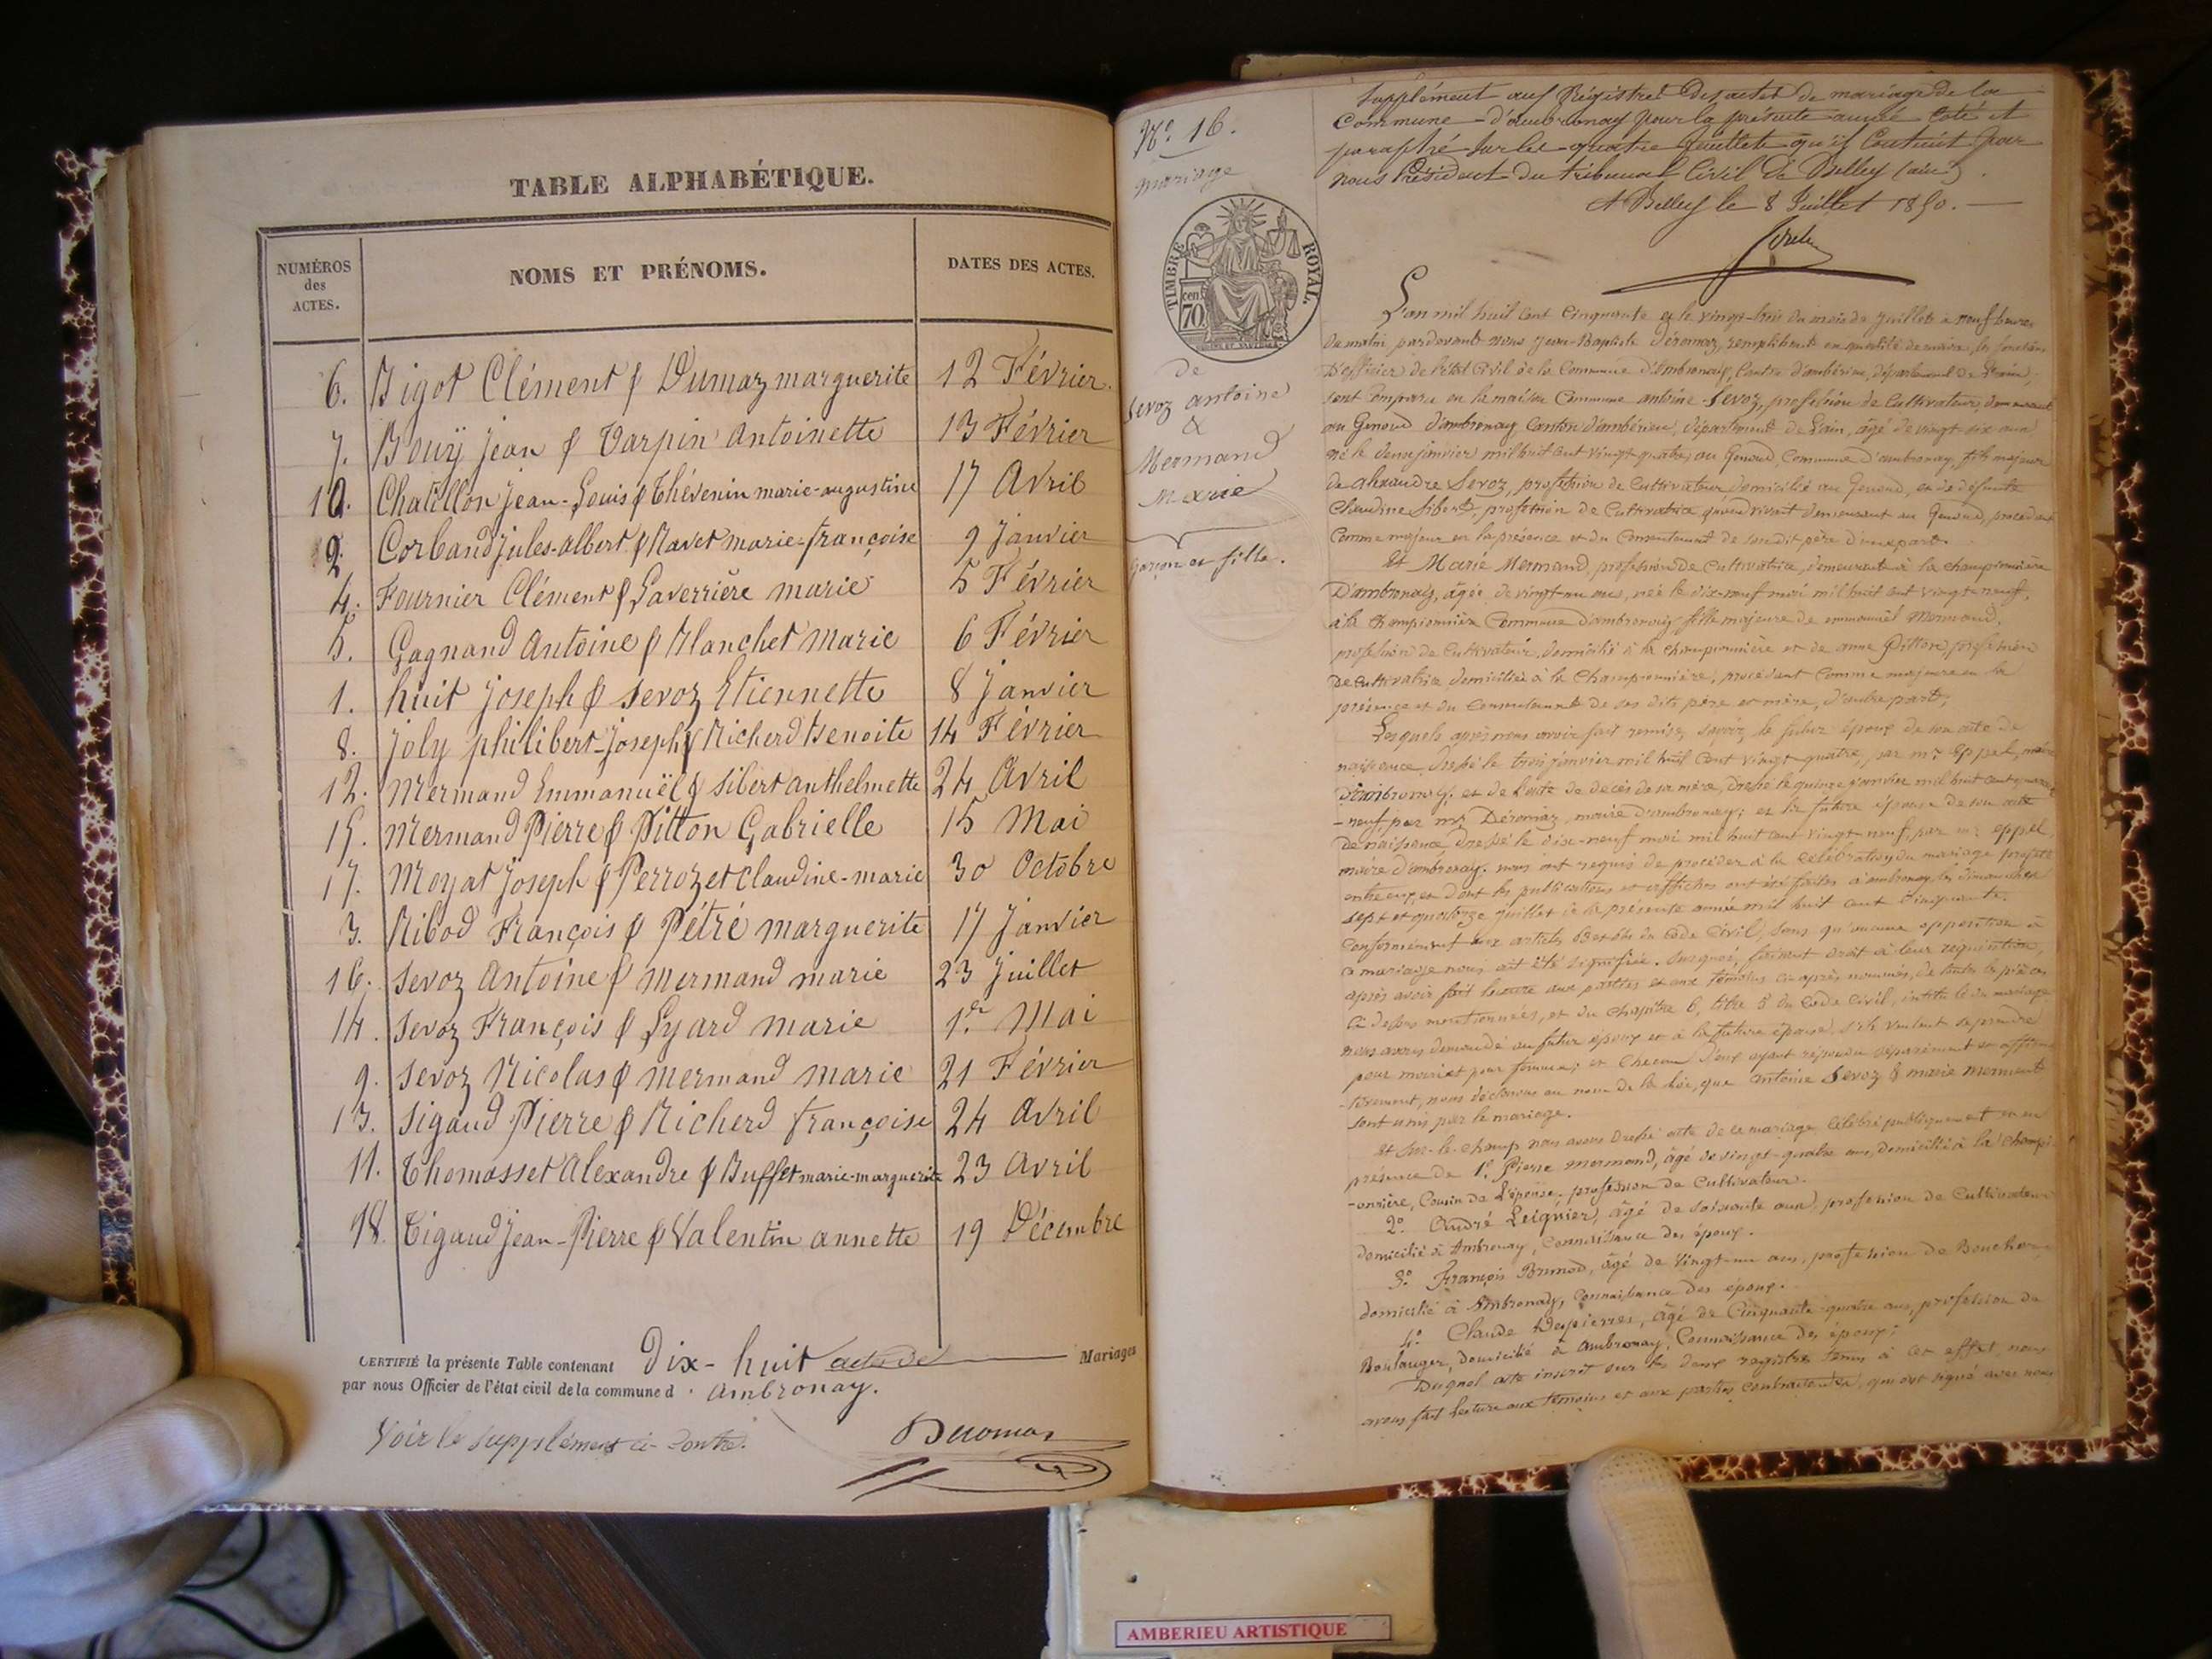 TABLE ALPHABÉTIQUE.
NUMÉROS des ACTES.
NOMS ET PRÉNOMS.
DATES DES ACTES.
6. Bigot Clément & Dumaz marguerite 12 Février
7. Bouÿ Jean & Tarpin Antoinette 13 Février
10. Chatillon Jean-Louis & Thévenin marie-augustine 17 Avril
2. Corband Jules-albert & Navet marie-françoise 9 Janvier
4. Fournier Clément & Laverrière marie 5 Février
5. Gagnand Antoine & Blanchet Marie 6 Février
1. huit Joseph & Sevoz Etiennette 8 Janvier
8. Joly philibert-Joseph & Richerd Benoite 14 Février
12. Mermand Emmanuël & Sibert anthelmette 24 Avril
15. Mermand Pierre & Pitton Gabrielle 15 Mai
17. Moyat Joseph & Perrozet Claudine-marie 30 Octobre
3. Ribod François & Pétré marguerite 17 Janvier
16. Sevoz Antoine & Mermand marie 23 Juillet
14. Sevoz François & Lyard marie 1er Mai
9. Sevoz Nicolas & Mermand marie 21 Février
13. Sigaud Pierre & Richerd françoise 24 Avril
11. Thomasset Alexandre & Buffet marie-marguerite 23 Avril
18. Tigaud Jean-Pierre & Valentin annette 19 Décembre
CERTIFIÉ la présente Table contenant Dix-huit actes de Mariages
par nous Officier de l'état civil de la commune d'ambronay.
Voir le supplément ci-contre.
Deromas
N.o 16.
mariage
TIMBRE ROYAL.
cen. 70
de
Sevoz antoine
&
Mermand
Marie
garçon et fille.
Supplément aux Régistres des actes de mariage de la
Commune d'ambronay pour la présente année coté et
paraphé sur les quatre feuillets qu'il contient par
nous Président du tribunal Civil de Belley (ain).
A Belley le 8 Juillet 1850.
L'an mil huit cent Cinquante et le vingt-trois du mois de Juillet à neuf heures
du matin pardevant nous Jean-Baptiste Déromaz, remplissant en qualité de maire, les fonctions
D'officier de l'état Civil de la Commune d'Ambronay, Canton d'ambérieu, département de l'ain,
sont comparu en la maison Commune antoine Sevoz, profession de Cultivateur, demeurant
au Genoud d'ambronay Canton d'ambérieu, département de l'ain, agé de vingt-six ans
né le deux janvier mil huit cent vingt-quatre, au Genoud, Commune d'ambronay, fils majeur
de alexandre Sevoz, profession de Cultivateur domicilié au Genoud, et de défunte
Claudine Sibert, profession de Cultivatrice quand vivait demeurant au Genoud, procédant
Comme majeur en la présence et du Consentement de son dit père d'une part.
Et Marie Mermand, profession de Cultivatrice, demeurante à la championnière
D'ambronay, âgée de vingt-un ans, née le dix-neuf mai mil huit cent vingt-neuf,
à la Championnière Commune d'ambronay fille majeure de emmanuël Mermand,
profession de Cultivateur, domicilié à la championnière et de anne Pitton, profession
De Cultivatrice domiciliée à la Championnière, procédant Comme majeure en la
présence et du Consentement de ses dits père et mère, d'autre part;
Lesquels après nous avoir fait remise, savoir, le futur époux de son acte de
naissance, dressé le trois janvier mil huit cent vingt-quatre, par mr. Eppel, maire
d'Ambronay; et de l'acte de décès de sa mère, dressé le quinze janvier mil huit cent quarante
-neuf, par mr. Déromaz, maire d'ambronay; et la future épouse de son acte
De naissance dressé le dix-neuf mai mil huit cent vingt-neuf, par mr. eppel,
maire d'ambronay. nous ont requis de procéder à la célébration du mariage projeté
entre eux, et dont les publications et affiches ont été faites à ambronay, les dimanches
sept et quatorze juillet de la présente année mil huit cent Cinquante.
Conformément aux articles 63 et 64 du Code Civil, sans qu'aucune opposition à
ce mariage nous ait été signifiée. Sur quoi, faisant droit à leur requisition,
après avoir fait lecture aux parties et aux témoins ci-après nommés, de toutes les pièces
ci-dessus mentionnées, et du chapitre 6, titre 5 du Code Civil, intitulé du mariage
nous avons demandé au futur époux et à la future épouse, s'ils veulent se prendre
pour mari et pour femme; et chacun d'eux ayant répondu séparément et affirma
-tivement, nous déclarons au nom de la loi, que antoine Sevoz & marie mermand
sont unis par le mariage.
Et sur-le-champ, nous avons dressé acte de ce mariage célébré publiquement en
présence de 1o. Pierre mermand, âgé de vingt-quatre ans, domicilié à la champi
-onnière, Cousin de l'épouse, profession de Cultivateur.
2o. André Leignier, âgé de soixante ans, profession de Cultivateur
domicilié à Ambronay, connaissance des époux.
3o. François Brunod, âgé de vingt-un ans, profession de Boucher
domicilié à Ambronay, Connaissance des époux.
4o. Claude Despierres, âgé de Cinquante-quatre ans, profession de
Boulanger, domicilié à ambronay, Connaissance des époux;
Duquel acte inscrit sur les deux registres tenus à cet effet, nous
avons fait lecture aux témoins et aux parties contractantes, qui ont signé avec nous
AMBERIEU ARTISTIQUE